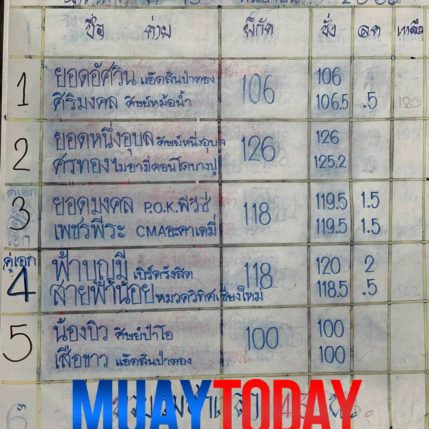 ชื่อ ค่าย พิกัด ชั่ง ลด เหลือ
1 ยอดอัศวิน แอ๊ดสันป่าตอง 106 106
ศิริมงคล ศิษย์หม้อน้ำ 106.5 .5
2 ยอดหนึ่งอุบล ศิษย์หนึ่งอุบล 126 126
ศรทอง ไมอามี่คอนโดบางปู 125.2
3 ยอดมงคล P.O.K. 118 119.5 1.5
เพชรพีระ CMAอะคาเดมี่ 119.5 1.5
คู่เอก
4 ฟ้าบุญมี เบิร์ดรังสิต 118 120 2
สายฟ้าน้อย หมวดวิทิศเชียงใหม่ 118.5 .5
5 น้องบิว ศิษย์ป๋าโอ 100 100
เสือขาว แอ๊ดสันป่าตอง 100
6
MUAYTODAY